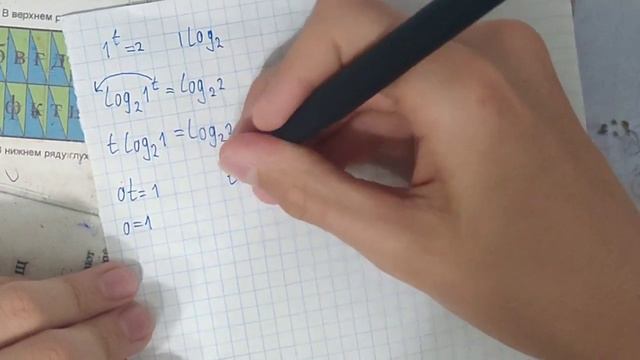 В верхнем р
б в г д
ф к т п
В нижнем ряду глух
1^t=2 | log_2
log_2 1^t = log_2 2
t log_2 1 = log_2 2
0t=1
0=1